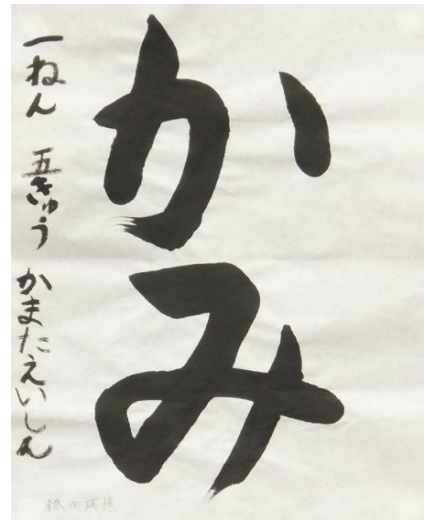 かみ
一ねん 五きゅう かまたえいしん